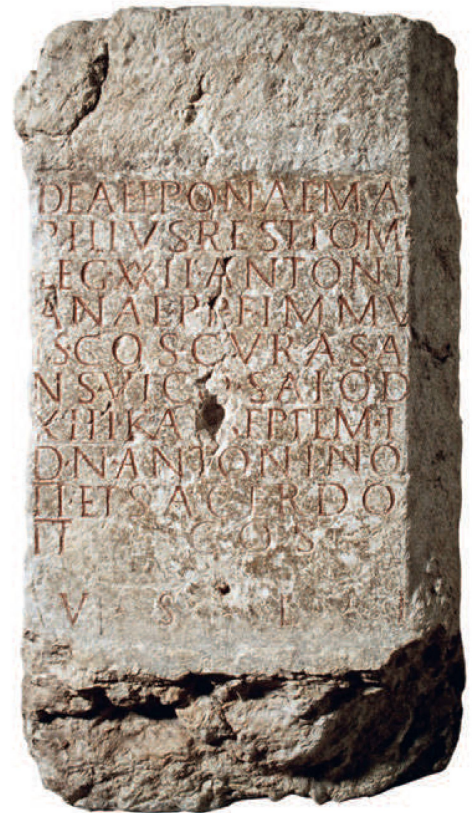 DEAE EPONAE MA
PILIVS RESTIO M
LEG XXII ANTONI
ANAE P P F IMMV
IS COS CVRAS A
NS VICO SALOD
XIIII KAL SEPTEM
D·N·ANTONINO
II·ET SACERDO
II COS
V S L